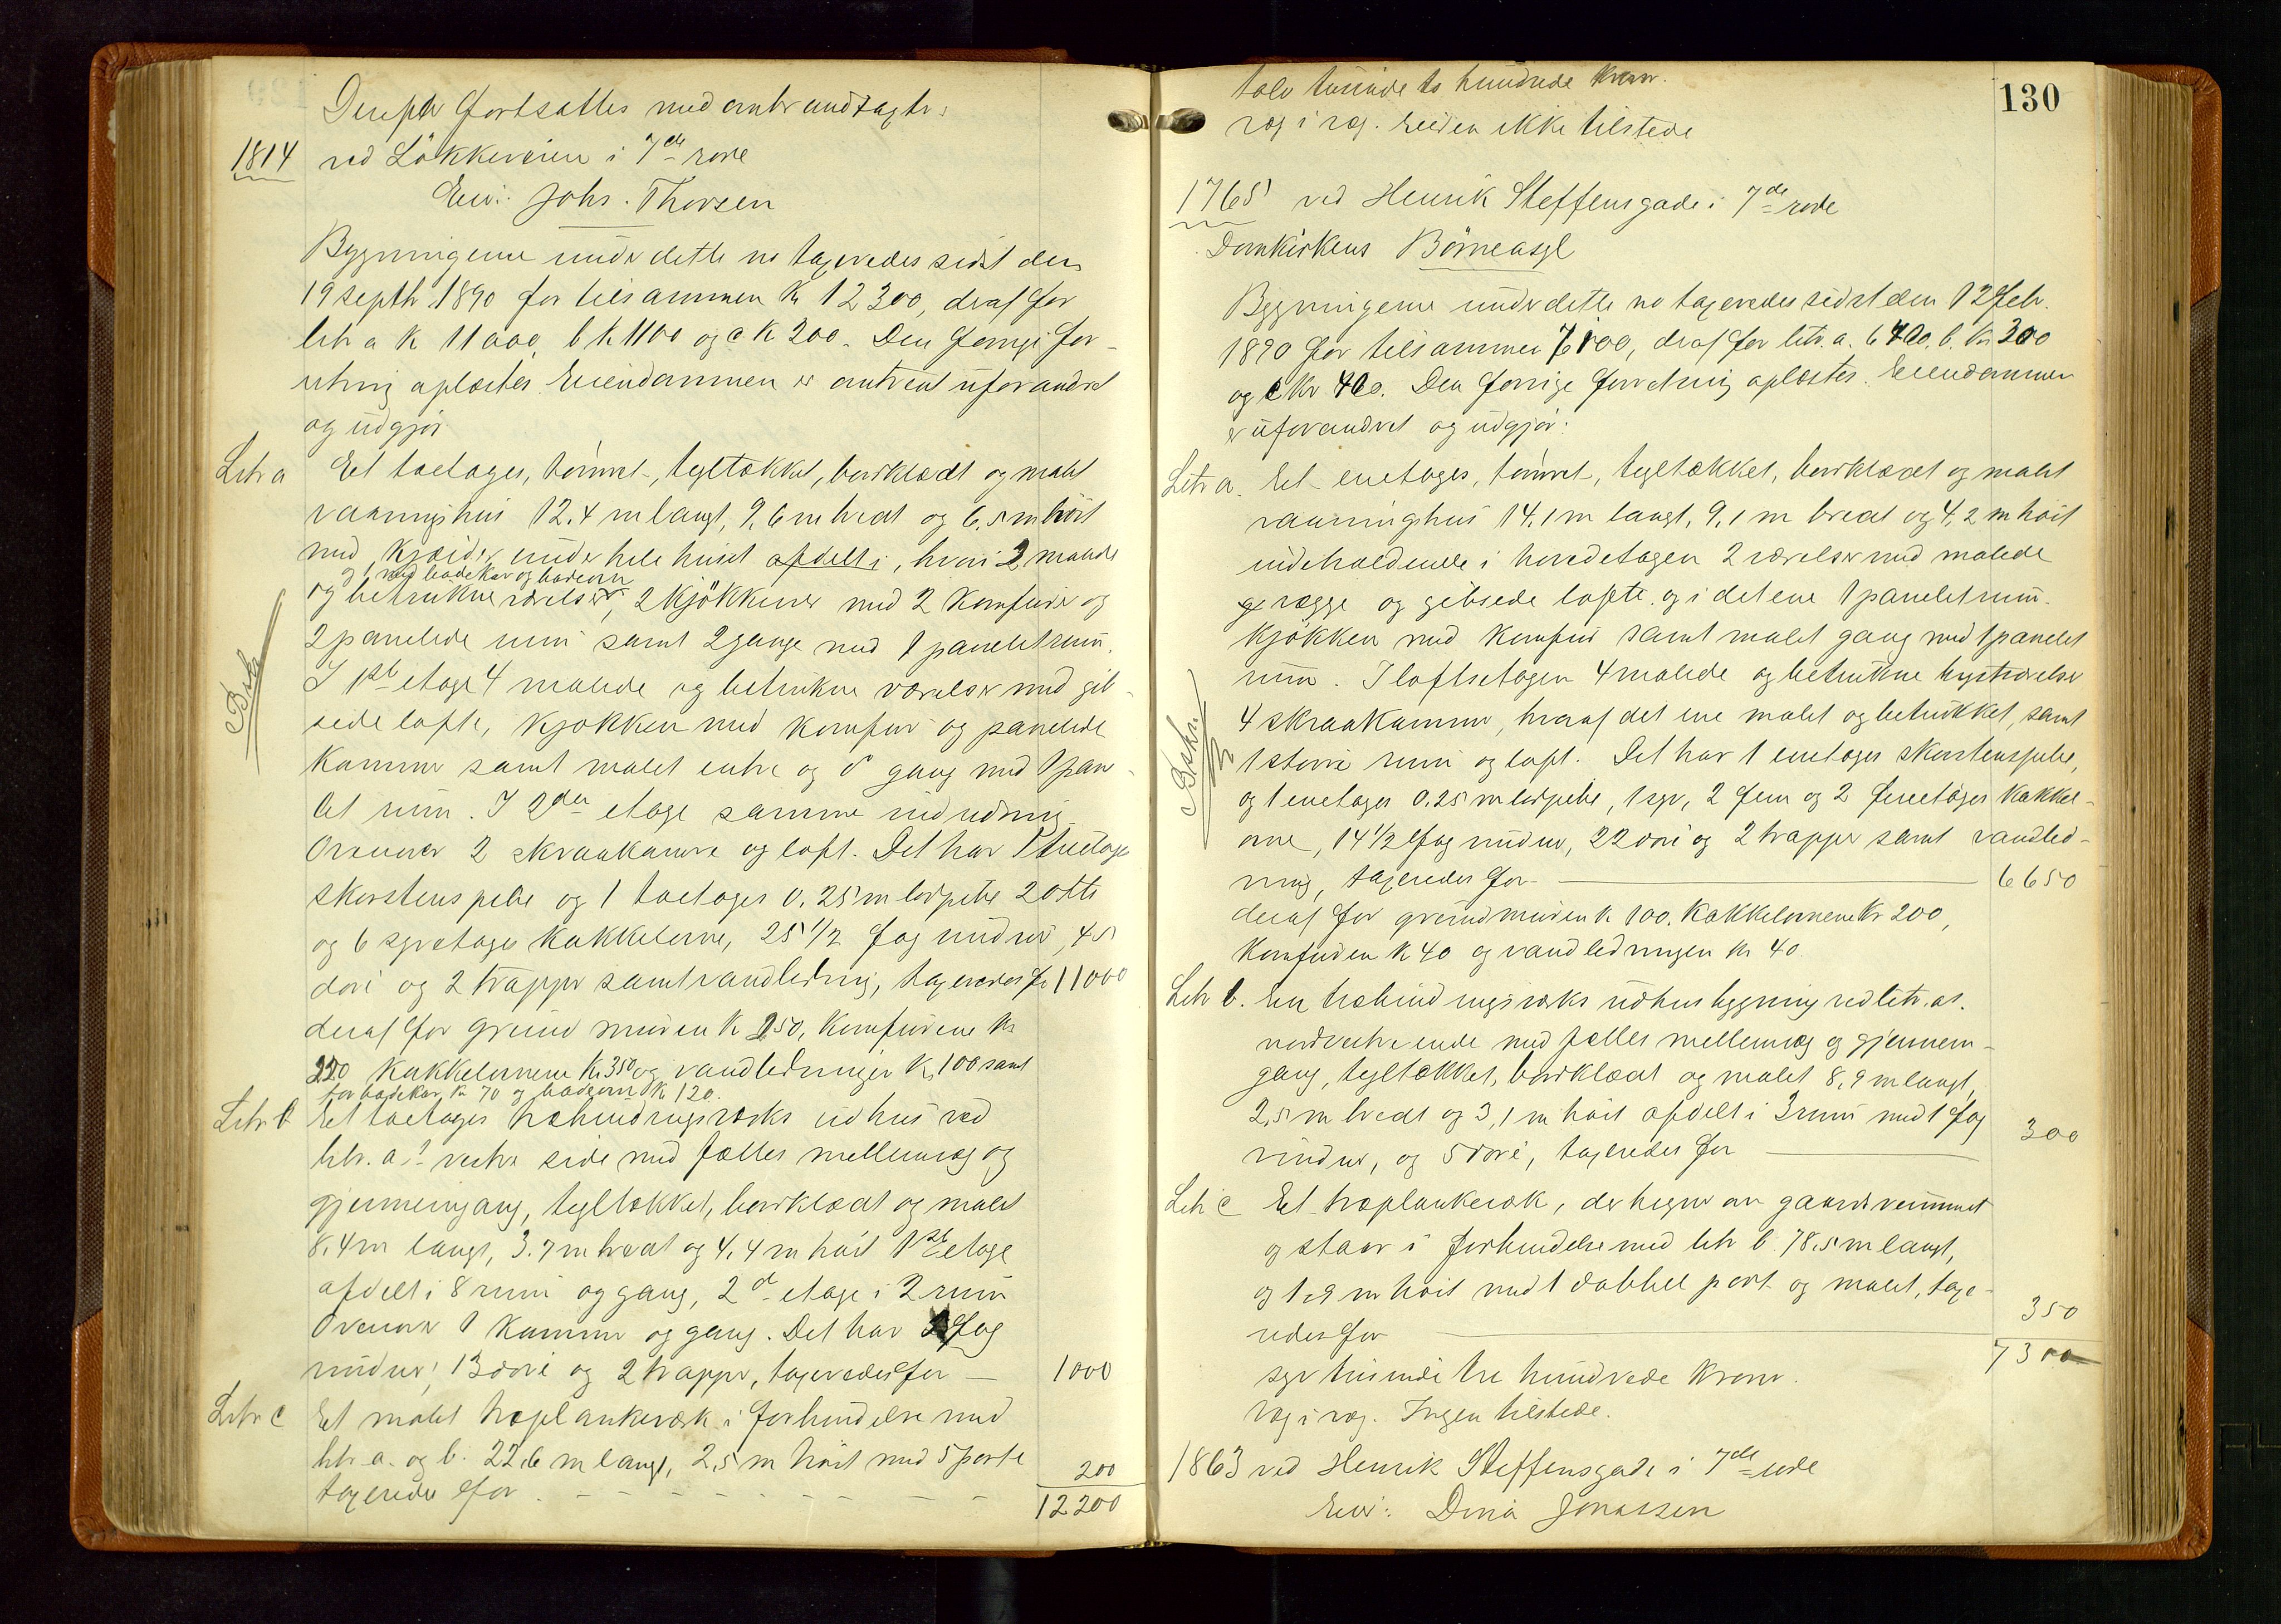 Derpaa fortsattes med ombrandtagtr:
1814 ved Lökkeveien i 7de rode
Eier: Johs. Thorsen
Bygningerne under dette no taxeredes sidst den
19 septbr 1890 for tilsammen Kr 12300, deraf for
litr a K 11000, b K 1100 og c K 200. Den forrige for-
retning oplæstes. Eiendommen er omtrent uforandret
og udgjör
Litr a Et toetages, tömret, tegltækket, bordklædt og malet
vaaningshus 12.4 m langt, 9,6 m bredt og 6,5 m höit
med kjælder under hele huset afdelt i, hvori 2 malede
og 1 med badekar og badeovn
og betrukne værelser, 2 kjökkener med 2 komfurer og
2 panelede rum samt 2 gange med 1 panelet rum.
I 1ste etage 4 malede og betrukne værelser med gib-
sede lofte, kjökken med komfur og panelede
kammer samt malet entre og do gang med 1 pane-
let rum. I 2den etage samme indredning.
Ovenover 2 skraakamre og loft. Det har 1 treetages
skorstenspibe og 1 toetages 0.25 m lodpibe 2 otte
og 6 syvetages kakkelovne, 25 1/2 fag vinduer, 45
döre og 2 trapper samt vandledning, taxeredes for 11000
deraf for grundmuren K 250, komfurene Kr
220 kakkelovnene Kr. 350 og vandledningen K 100 samt
for badekar Kr 70 og badeovn K 120.
Litr b Et toetages træbindingsværks udhus ved
litr. a.s vestre side med fælles mellemvæg og
gjennemgang, tegltækket, bordklædt og malet
8,4 m langt, 3.7 m bredt og 4,4 m höit 1ste etage
afdelt i 8 rum og gang, 2den etage i 2 rum
Ovenover 1 kammer og gang. Det har fag
vinduer, 13 döre og 2 trapper, taxeredes for — 1000
Litr c Et malet træplankeværk i forbindelse med
litr a. og b. 22,6 m langt, 2,5 m höit med 5 porte
taxeredes for 200
12200
Beskr
130
tolv tusinde to hundrede kroner.
væg i væg. Eieren ikke tilstede
1765 ved Henrik Steffensgade i 7de rode
Domkirkens Börneasyl
Bygningerne under dette no taxeredes sidst den 12 febr.
1890 for tilsammen 7100, deraf for litr. a. 6400, b. Kr 300
og c Kr 400. Den forrige forretning oplæstes. Eiendommen
er uforandret og udgjör:
Litr a. Et enetages, tömret, tegltækket, bordklædt og malet
vaaningshus 14,1 m langt, 9,1 m bredt og 4,2 m höit
indeholdende i hovedetagen 2 værelser med malede
vægge og gibsede lofte og i det ene 1 panelet rum.
Kjökken med komfur samt malet gang med 1 panelet
rum. I loftsetagen 4 malede og betrukne kvistværelser
4 skraakammer, hvoraf det ene malet og betrukket, samt
1 större rum og loft. Det har 1 enetages skorstenspibe,
og 1 enetages 0.25 m lodpibe, 1 syv, 2 fem og 2 fireetages kakkel-
ovne, 14 1/2 fag vinduer, 22 döre og 2 trapper samt vandled-
ning, taxeredes for — 6650
deraf for grundmuren K 100. Kakkelovnene Kr 200,
komfuren K 40 og vandledningen Kr 40.
Litr b. En træbindingsværks udhusbygning ved litr. as.
nordvestre ende med fælles mellemvæg og gjennem-
gang, tegltækket, bordklædt og malet 8,9 m langt,
2,5 m bredt og 3,1 m höit afdelt i 3 rum med 1 fag
vinduer, og 5 döre, taxeredes for — 300
Litr c Et træplankeværk, der hegner om gaardsrummet
og staar i forbindelse med litr b. 78,5 m langt,
og 1.9 m höit med 1 dobbel port og malet, taxe-
redes for — 350
7300
syv tusinde tre hundrede kroner.
Væg i væg. Ingen tilstede.
1863 ved Henrik Steffensgade i 7de rode
Eier: Dina Jonassen
Beskr